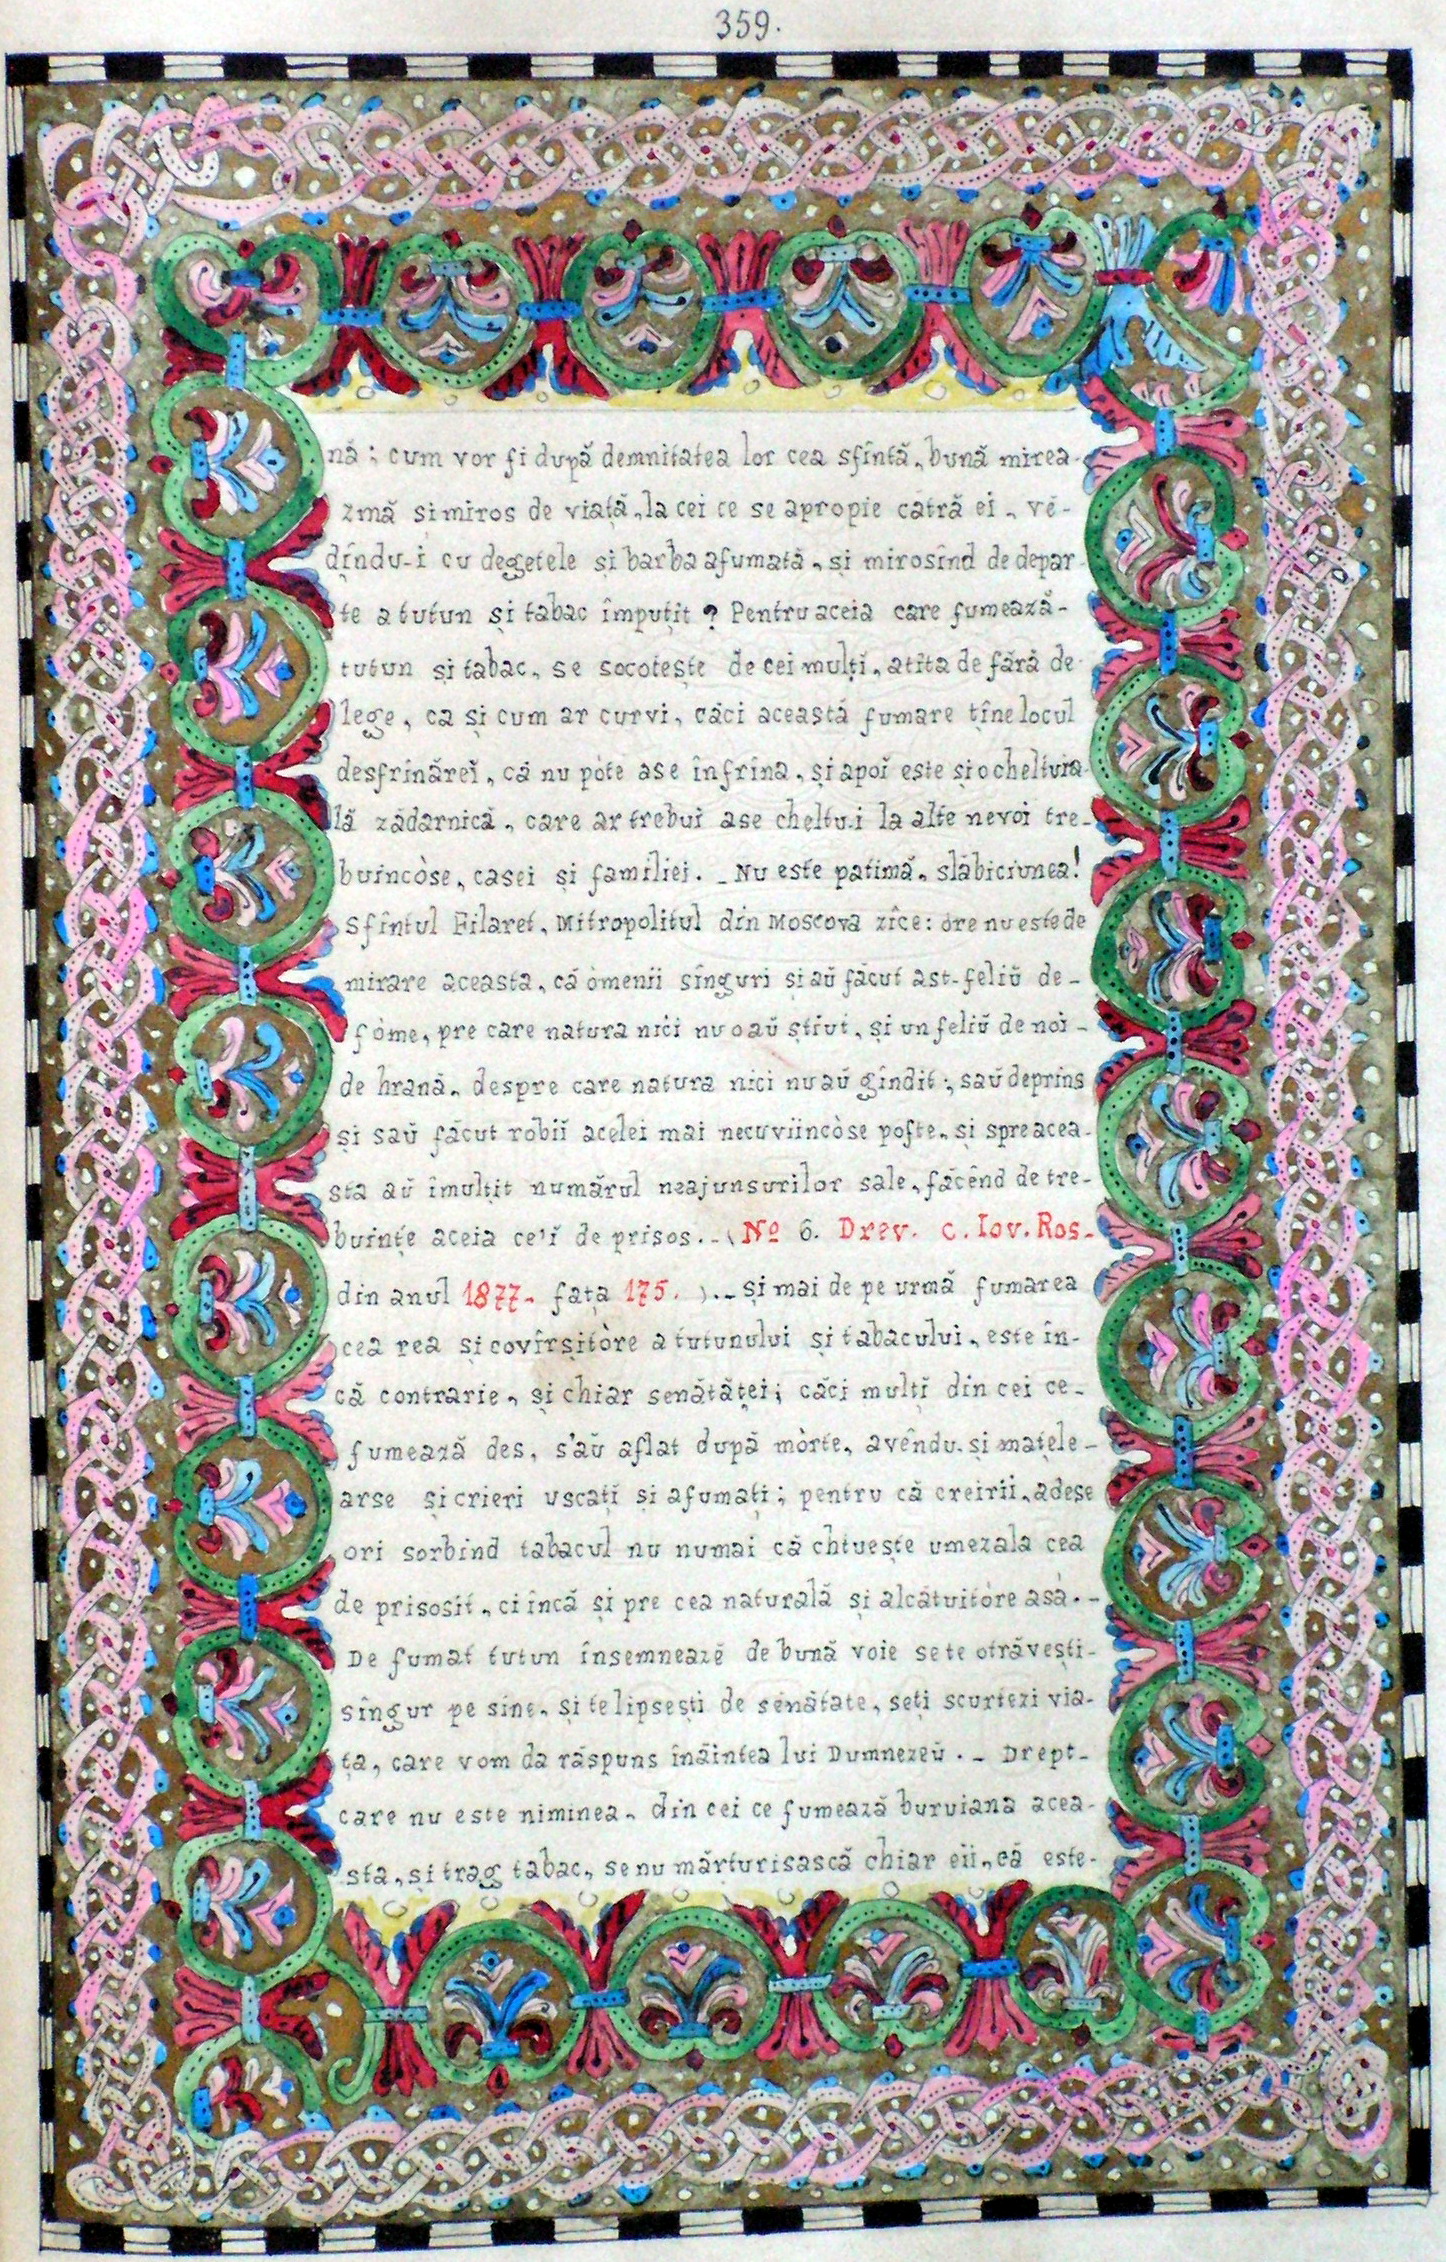 359.
nă; cum vor fi după demnitatea lor cea sfîntă, bună mirea-
zmă si miros de viață, la cei ce se apropie cătră ei, vĕ-
dîndu-i cu degetele și barba afumată, și mirosînd de depar-
te a tutun și tabac împuțit? Pentru aceia care fumează-
tutun și tabac, se socotește de cei mulți, atîta de fără de-
lege, ca și cum ar curvi, căci această fumare ține locul
desfrînăreĭ, că nu pòte ase înfrîna, și apoĭ este și o cheltuia-
lă zădarnică, care ar trebui ase cheltu-i la alte nevoi tre-
buincòse, casei și familiei. – Nu este patimă, slăbiciunea!
Sfîntul Filaret, Mitropolitul din Moscova zîce: óre nu este de
mirare aceasta, că òmenii sînguri și aŭ făcut ast-feliŭ de-
fòme, pre care natura nici nu o aŭ știut, și un feliŭ de noi-
de hrană, despre care natura nici nu aŭ gîndit; saŭ deprins
și saŭ făcut robiĭ acelei mai necuviincòse pofte, și spre acea-
sta aŭ îmulțit numărul neajunsurilor sale, făcênd de tre-
buințe aceia ce'ĭ de prisos. – (Nº 6. Drev. C. Iov. Ros.-
din anul 1877- fața 175. ). – și mai de pe urmă fumarea
cea rea și covîrșitòre a tutunului și tabacului, este în-
că contrarie, și chiar senătăței; căci mulțĭ din cei ce-
fumează des, s'aŭ aflat după mòrte, avêndu-și mațele-
arse și crieri uscațĭ și afumați; pentru că creirii, adese
ori sorbind tabacul nu numai că chtuește umezala cea
de prisosit, ci încă și pre cea naturală și alcătuitòre asà.-
De fumat tutun însemnează de bună voie se te otrăvești-
sîngur pe sine, și te lipsești de senătate, seți scurtezi via-
ța, care vom da răspuns înăintea lui Dumnezeŭ. – Drept-
care nu este niminea, din cei ce fumează buruiana acea-
sta, și trag tabac, se nu mărturisască chiar eii, că este-